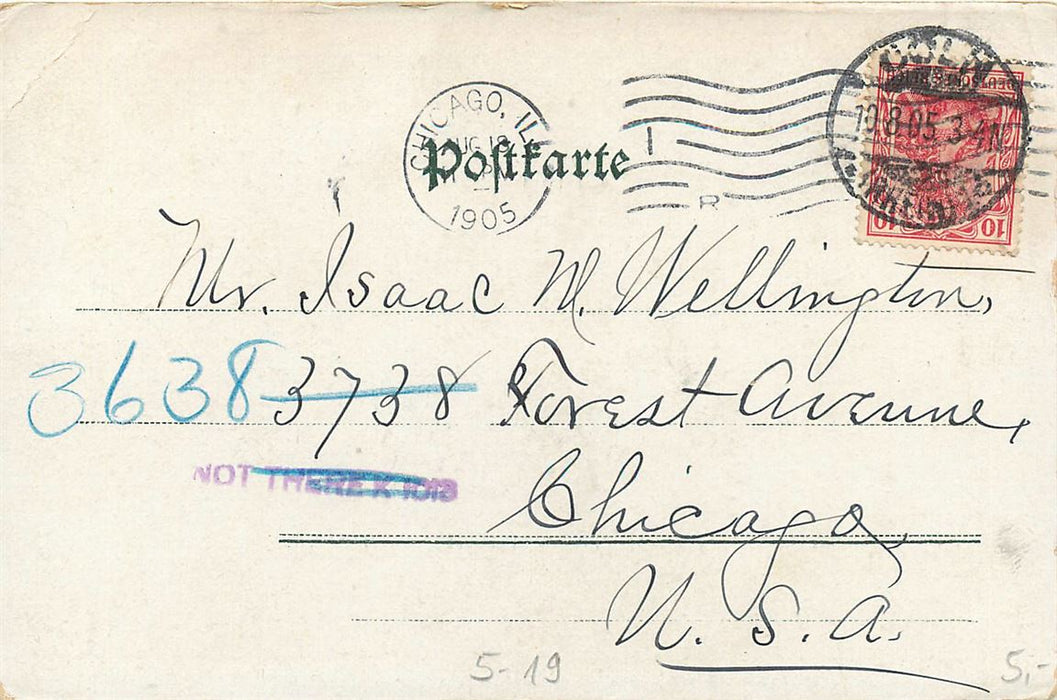 CHICAGO, ILL.
AUG 18
1905
R
10.8.05.3-4N
10 10
Postkarte
Mr. Isaac M. Wellington,
3638 3738 Forest Avenue,
NOT THERE K 1018
Chicago
U. S. A.
5-19
5,-